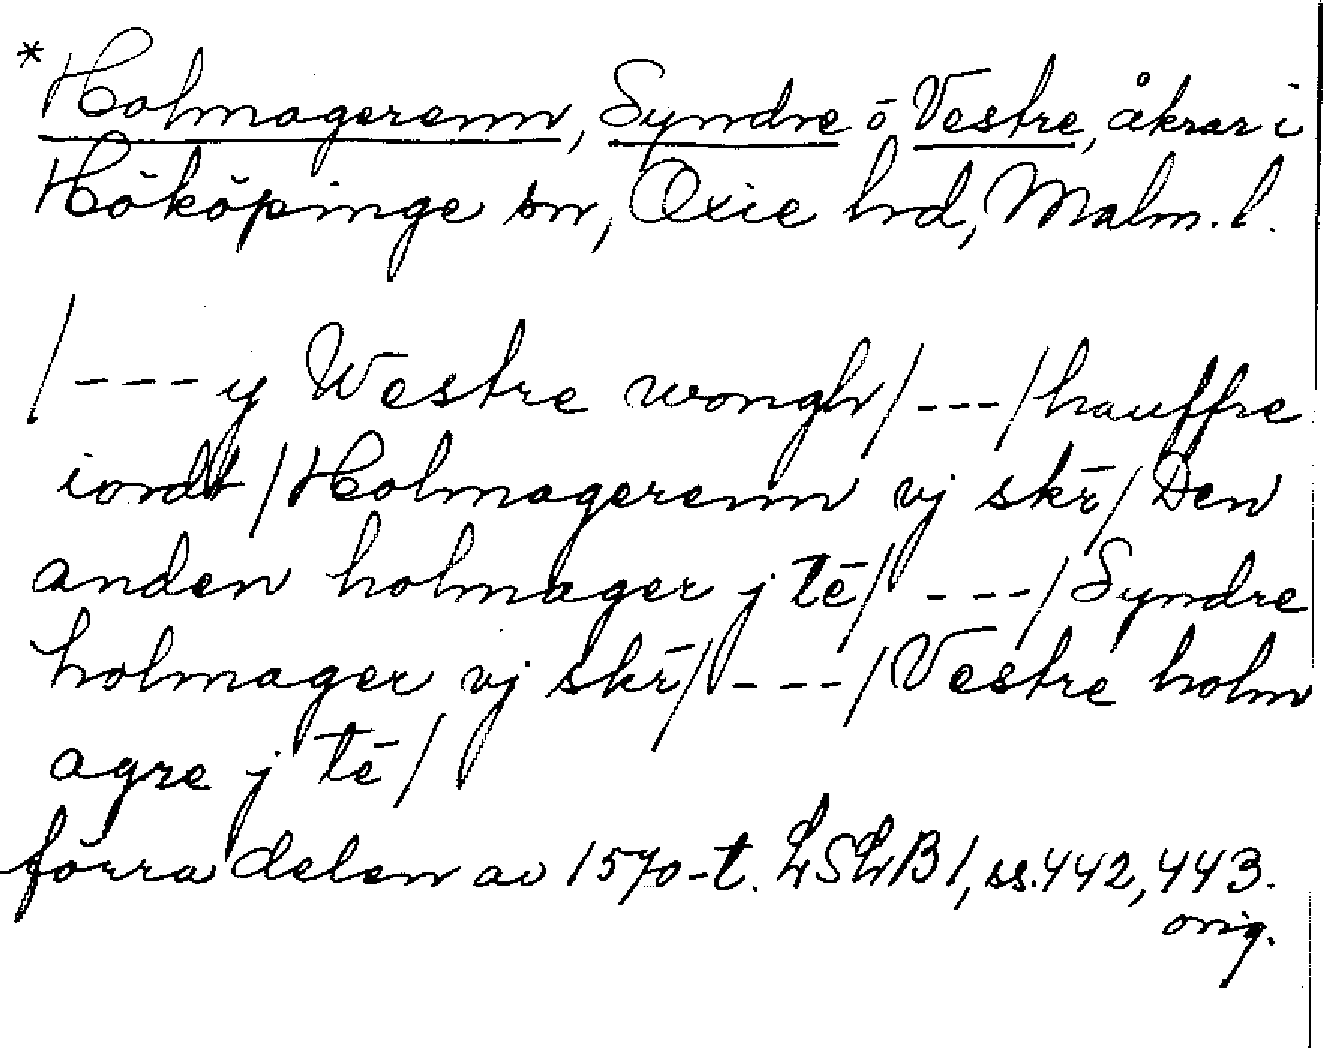 *Holmagerenn, Syndre ō Vestre, åkrar i
Hököpinge sn, Oxie hd, Malm. l.
/---y Westre wongh/---/hauffre
iordt/Holmagerenn vj skr̄/Den
anden holmager j tē/---/Syndre
holmager vj skr̄/---/Vestre holm
agre j tē/
förra delen av 1570-t. LSLB1, ss. 442, 443.
orig.